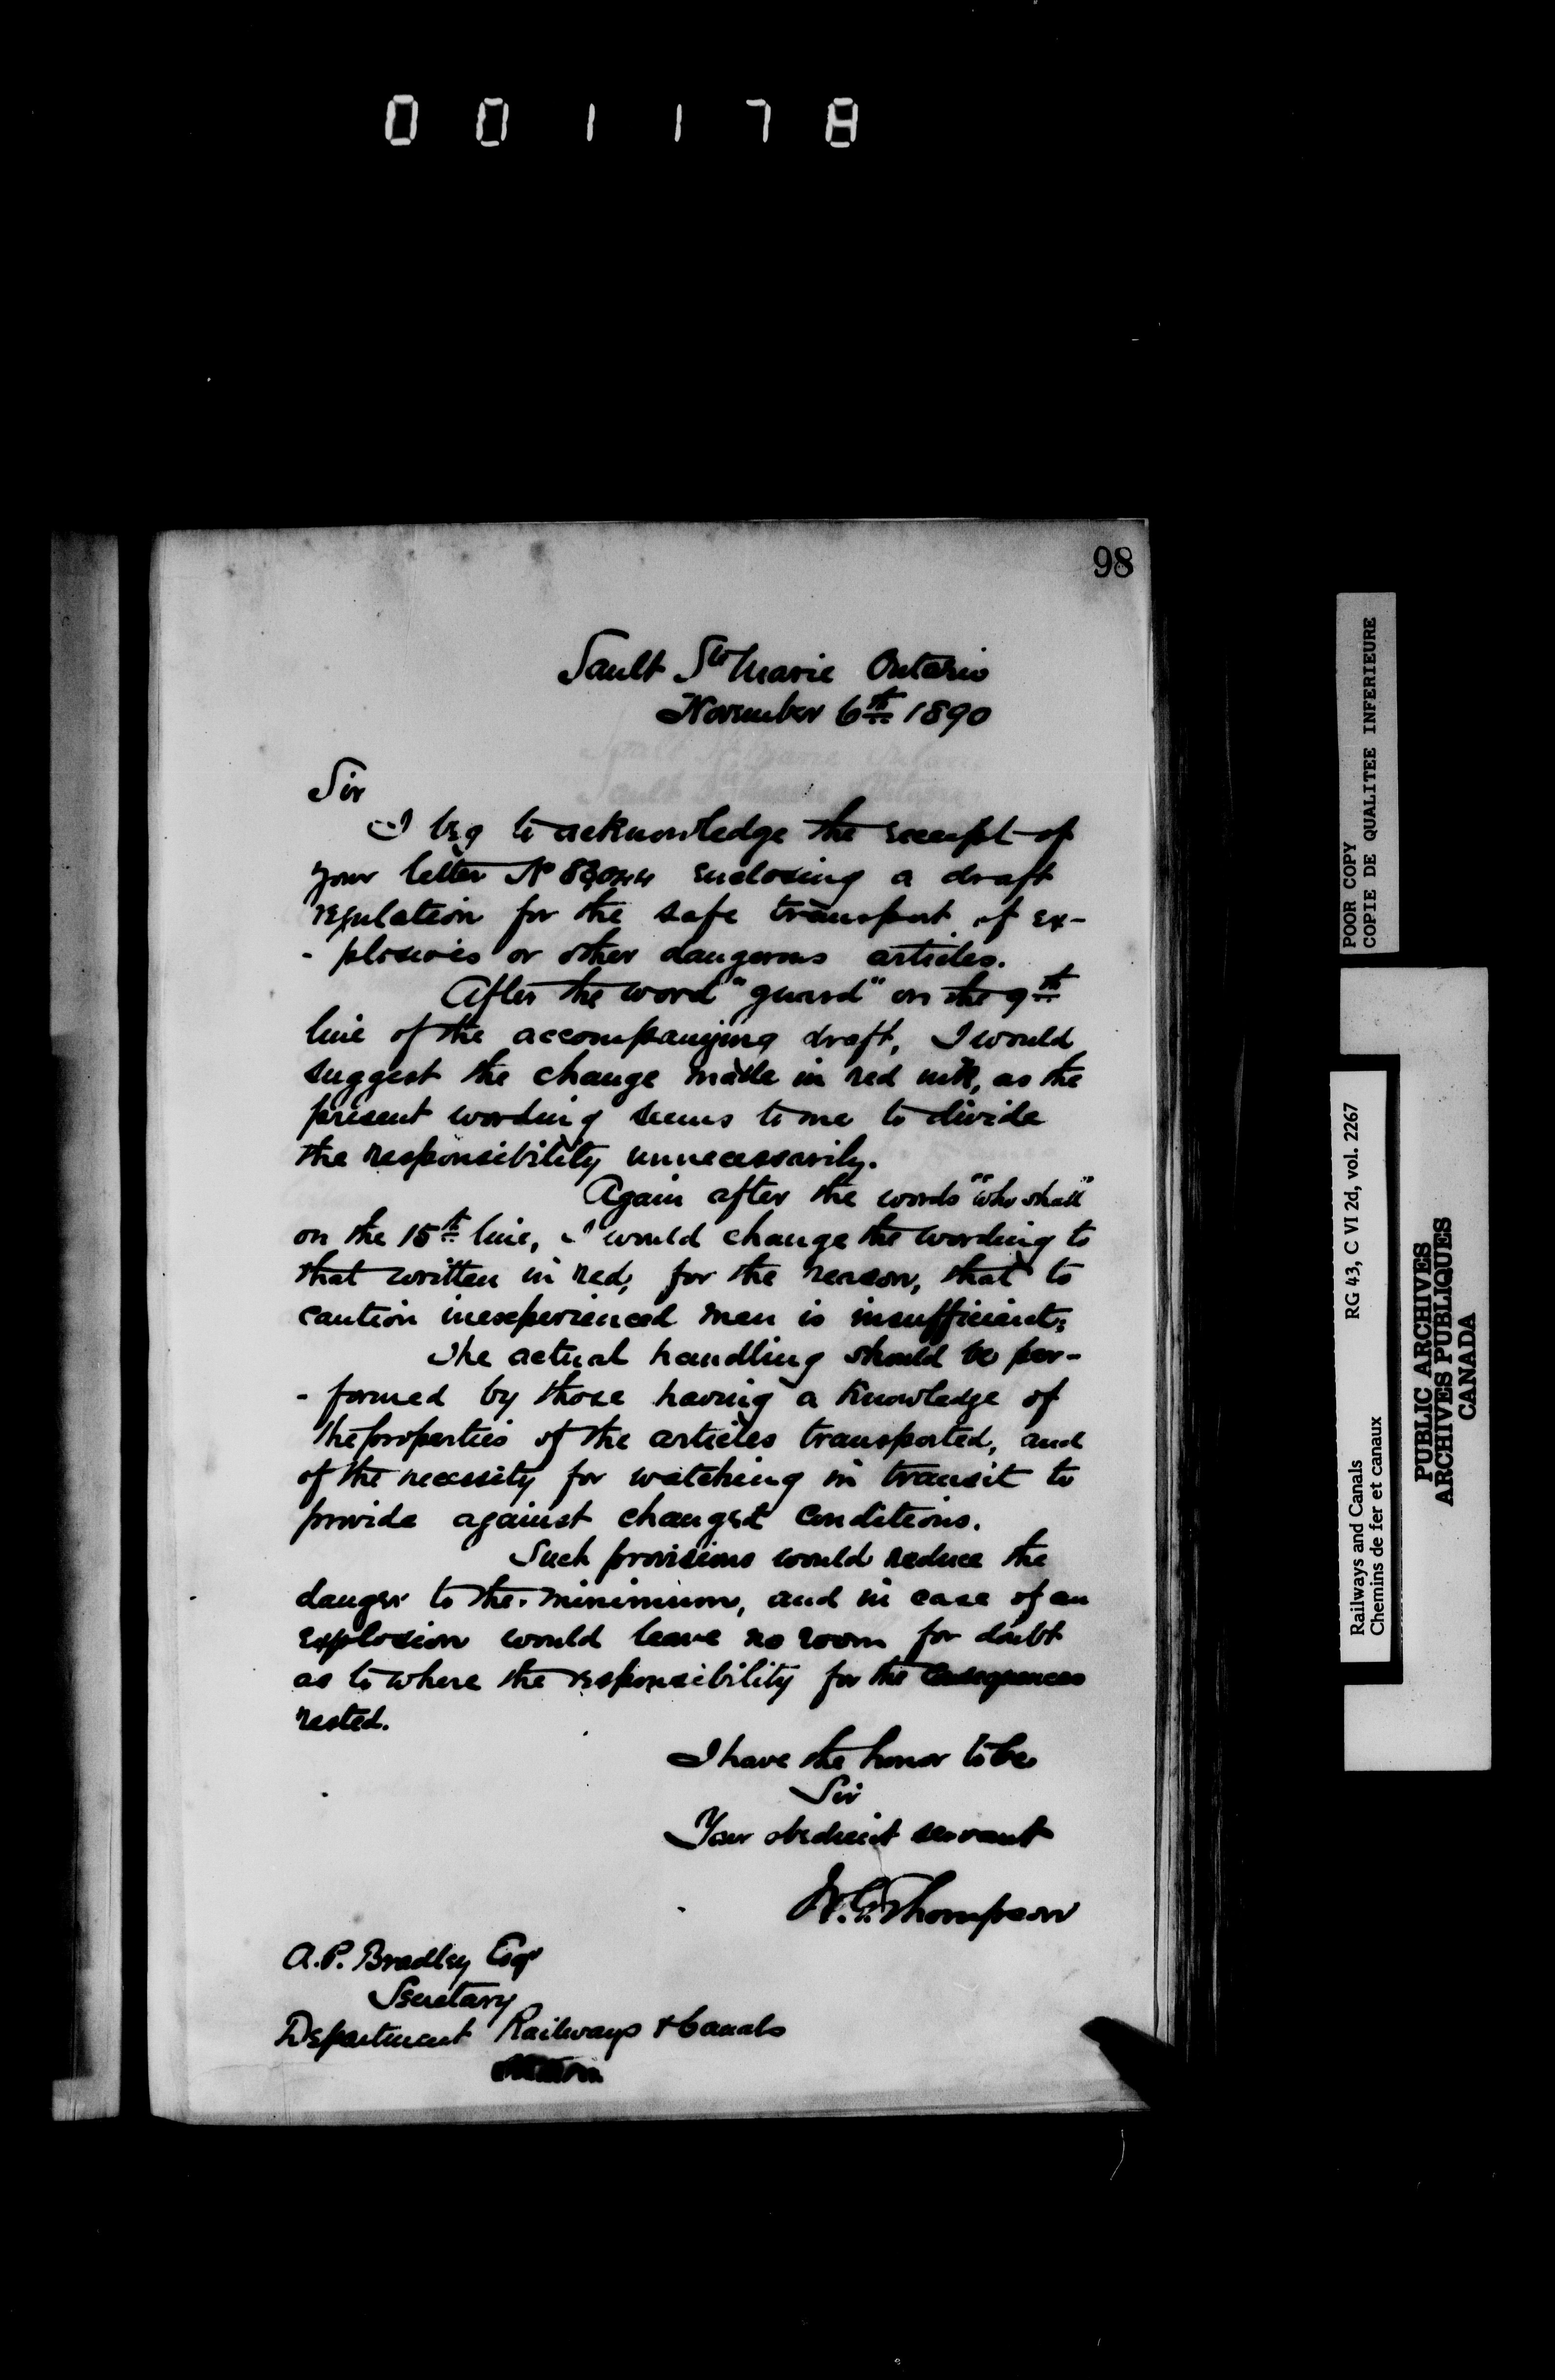 001178
98
Sault Ste Marie Ontario
November 6th 1890
Sir
I beg to acknowledge the receipt of
your letter No enclosing a draft
regulation for the safe transport of ex-
- plosives or other dangerous articles.
After the word "guard" on the 9th
line of the accompanying draft, I would
suggest the change made in red ink, as the
present wording seems to me to divide
the responsibility unnecessarily.
Again after the words "who shall"
on the 15th line, I would change the wording to
that written in red, for the reason, that to
caution inexperienced men is insufficient;
The actual handling should be per-
- formed by those having a knowledge of
the properties of the articles transported, and
of the necessity for watching in transit to
provide against changed conditions.
Such provisions would reduce the
danger to the minimum, and in case of an
explosion would leave no room for doubt
as to where the responsibility for the consequences
rested.
I have the honor to be
Sir
Your obedient servant
W.G. Thompson
A.P. Bradley Esqr
Secretary
Department Railways & Canals
POOR COPY
COPIE DE QUALITEE INFERIEURE
Railways and Canals RG 43, C VI 2d, vol. 2267
Chemins de fer et canaux
PUBLIC ARCHIVES
ARCHIVES PUBLIQUES
CANADA